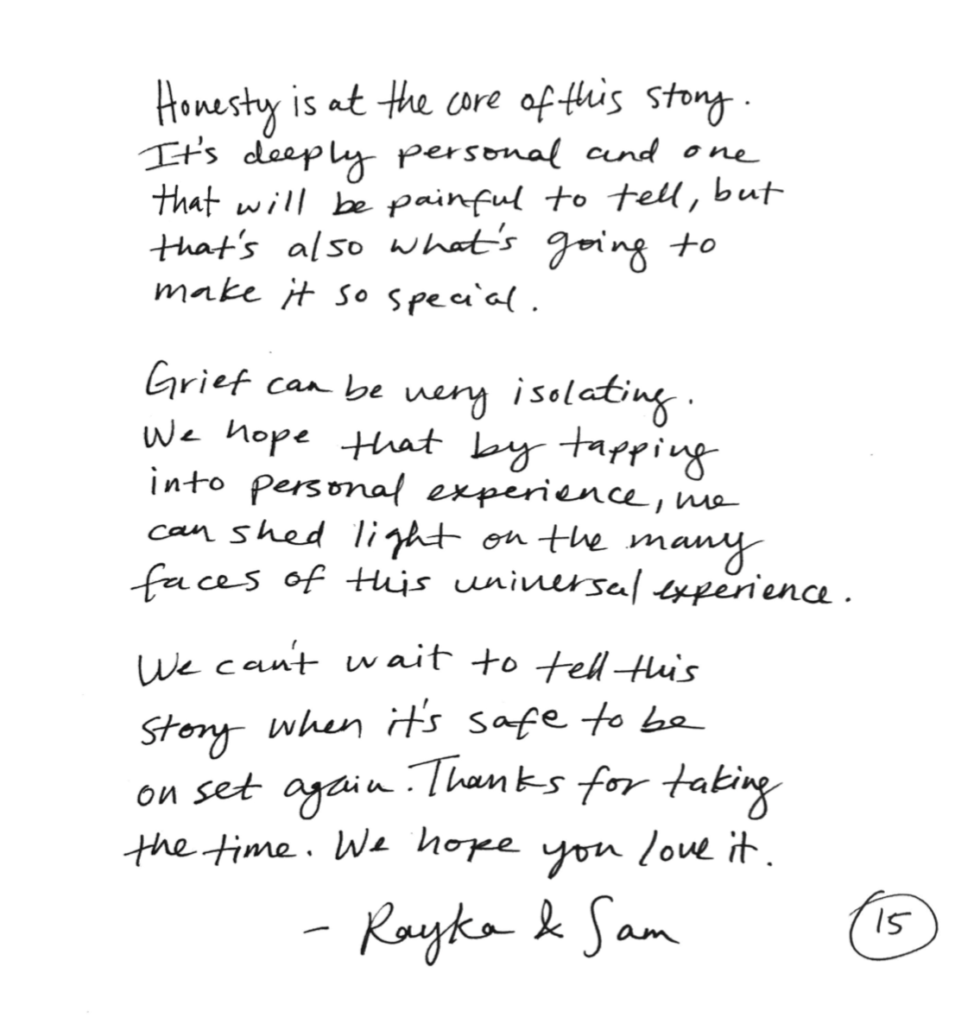 Honesty is at the core of this story.
It's deeply personal and one
that will be painful to tell, but
that's also what's going to
make it so special.
Grief can be very isolating.
We hope that by tapping
into personal experience, we
can shed light on the many
faces of this universal experience.
We can't wait to tell this
story when it's safe to be
on set again. Thanks for taking
the time. We hope you love it.
- Rayka & Sam
15